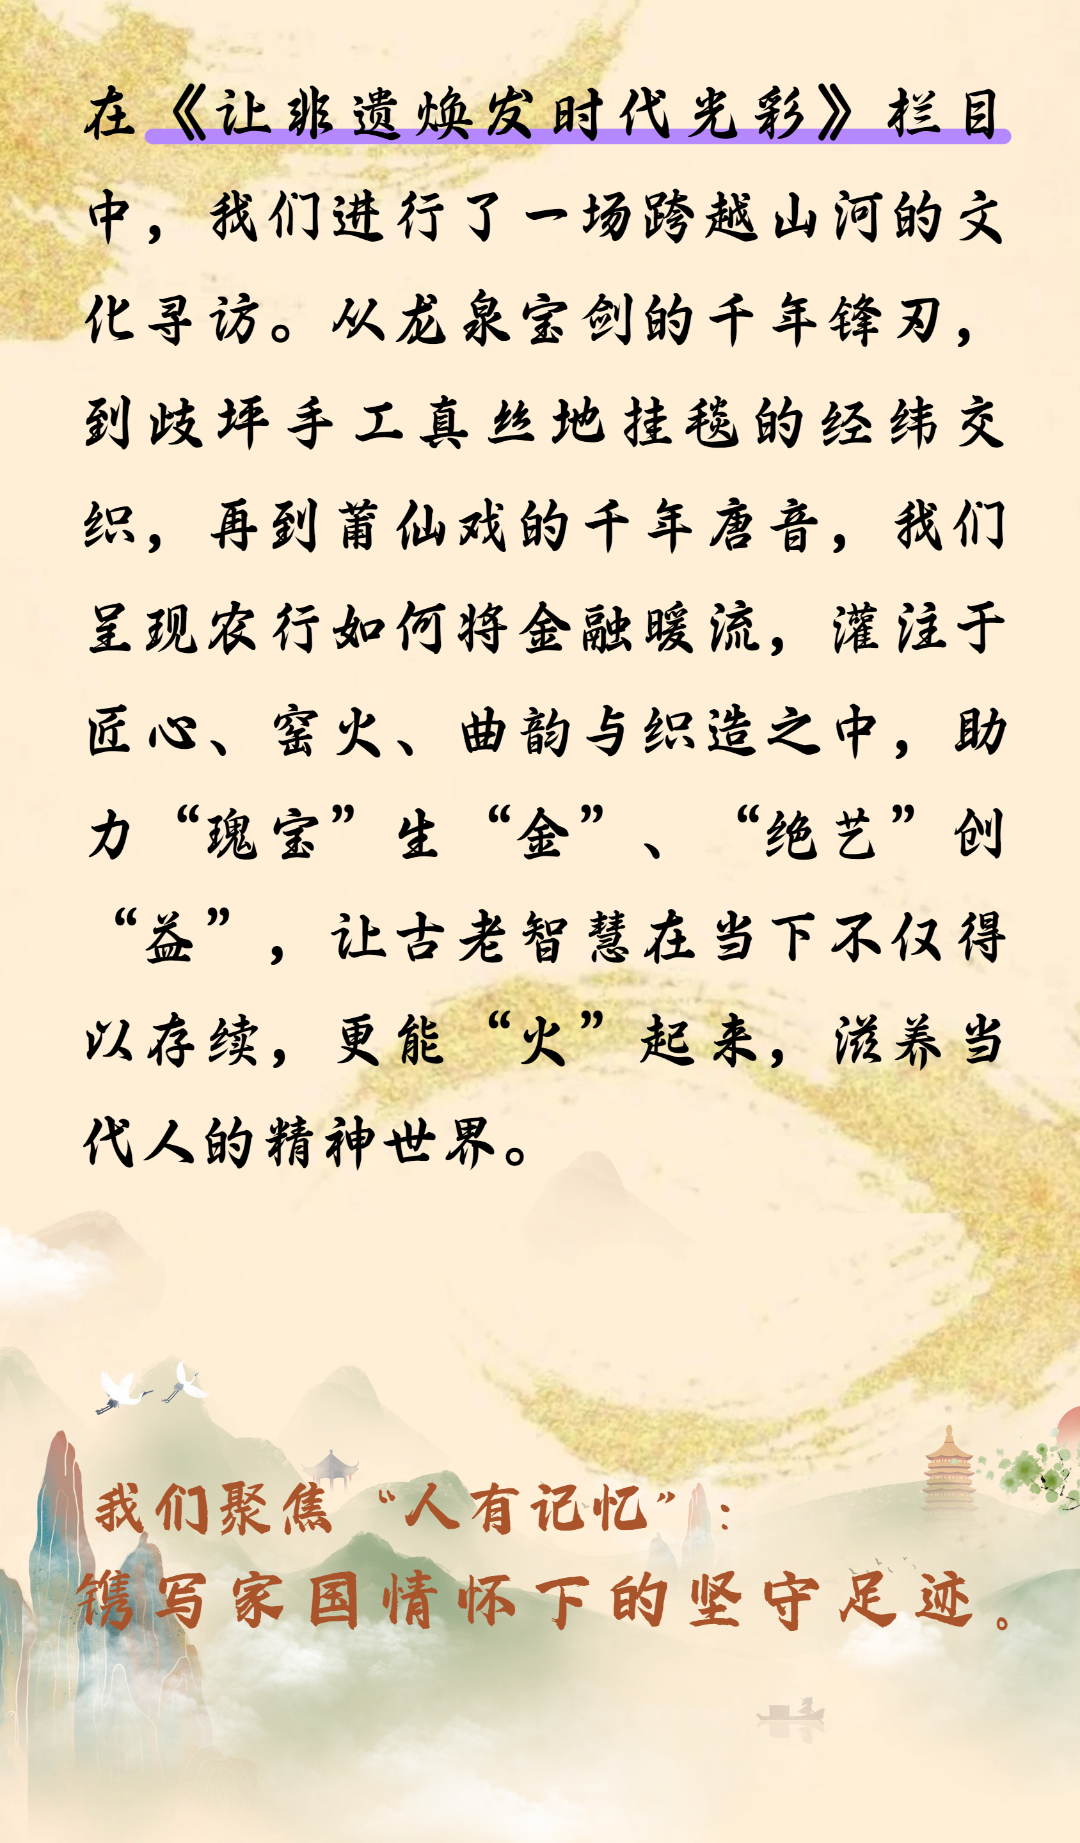 在《让非遗焕发时代光彩》栏目
中，我们进行了一场跨越山河的文
化寻访。从龙泉宝剑的千年锋刃，
到歧坪手工真丝地挂毯的经纬交
织，再到莆仙戏的千年唐音，我们
呈现农行如何将金融暖流，灌注于
匠心、窑火、曲韵与织造之中，助
力“瑰宝”生“金”、“绝艺”创
“益”，让古老智慧在当下不仅得
以存续，更能“火”起来，滋养当
代人的精神世界。
我们聚焦“人有记忆”：
镌写家国情怀下的坚守足迹。